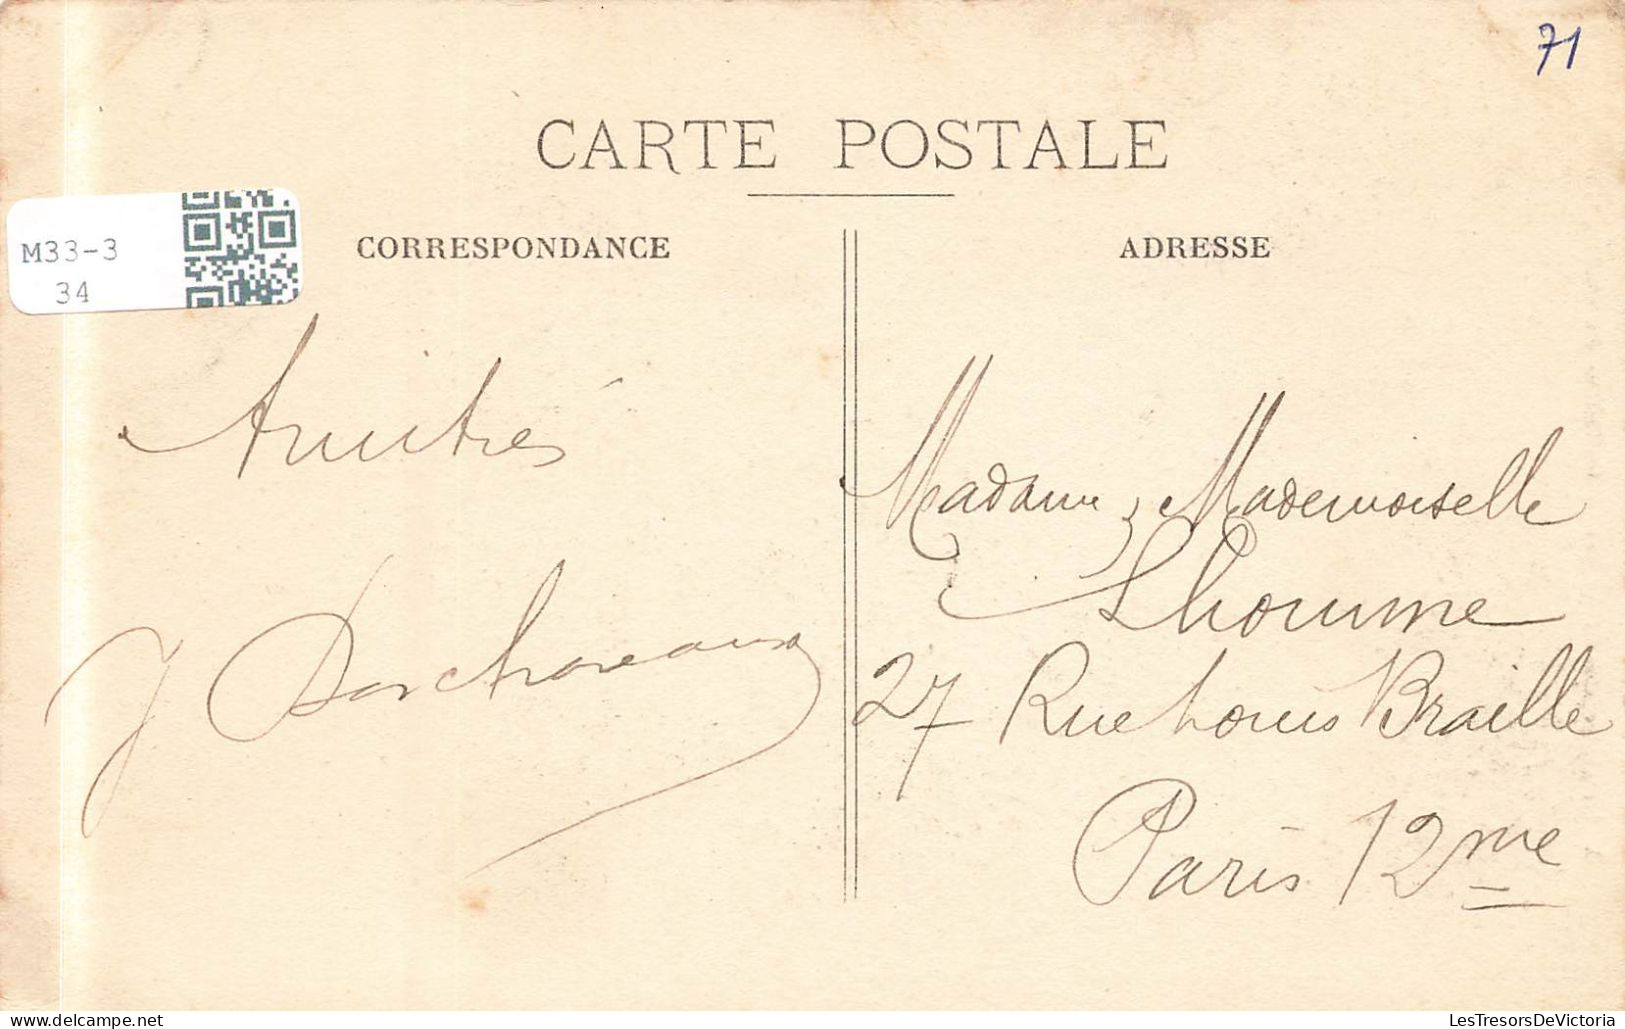 71
CARTE POSTALE
M33-3
34
CORRESPONDANCE
ADRESSE
Amitiés
Madame, Mademoiselle
Lhomme
27 Rue Louis Braille
Paris 12me
LesTresorsDeVictoria